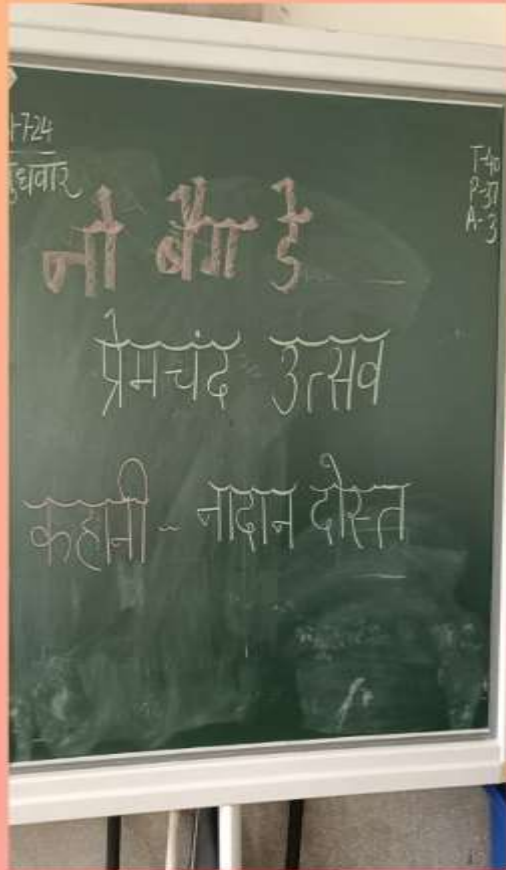 बुधवार
T-40
P-37
A-3
नो बैग डे
प्रेमचंद उत्सव
कहानी - नादान दोस्त